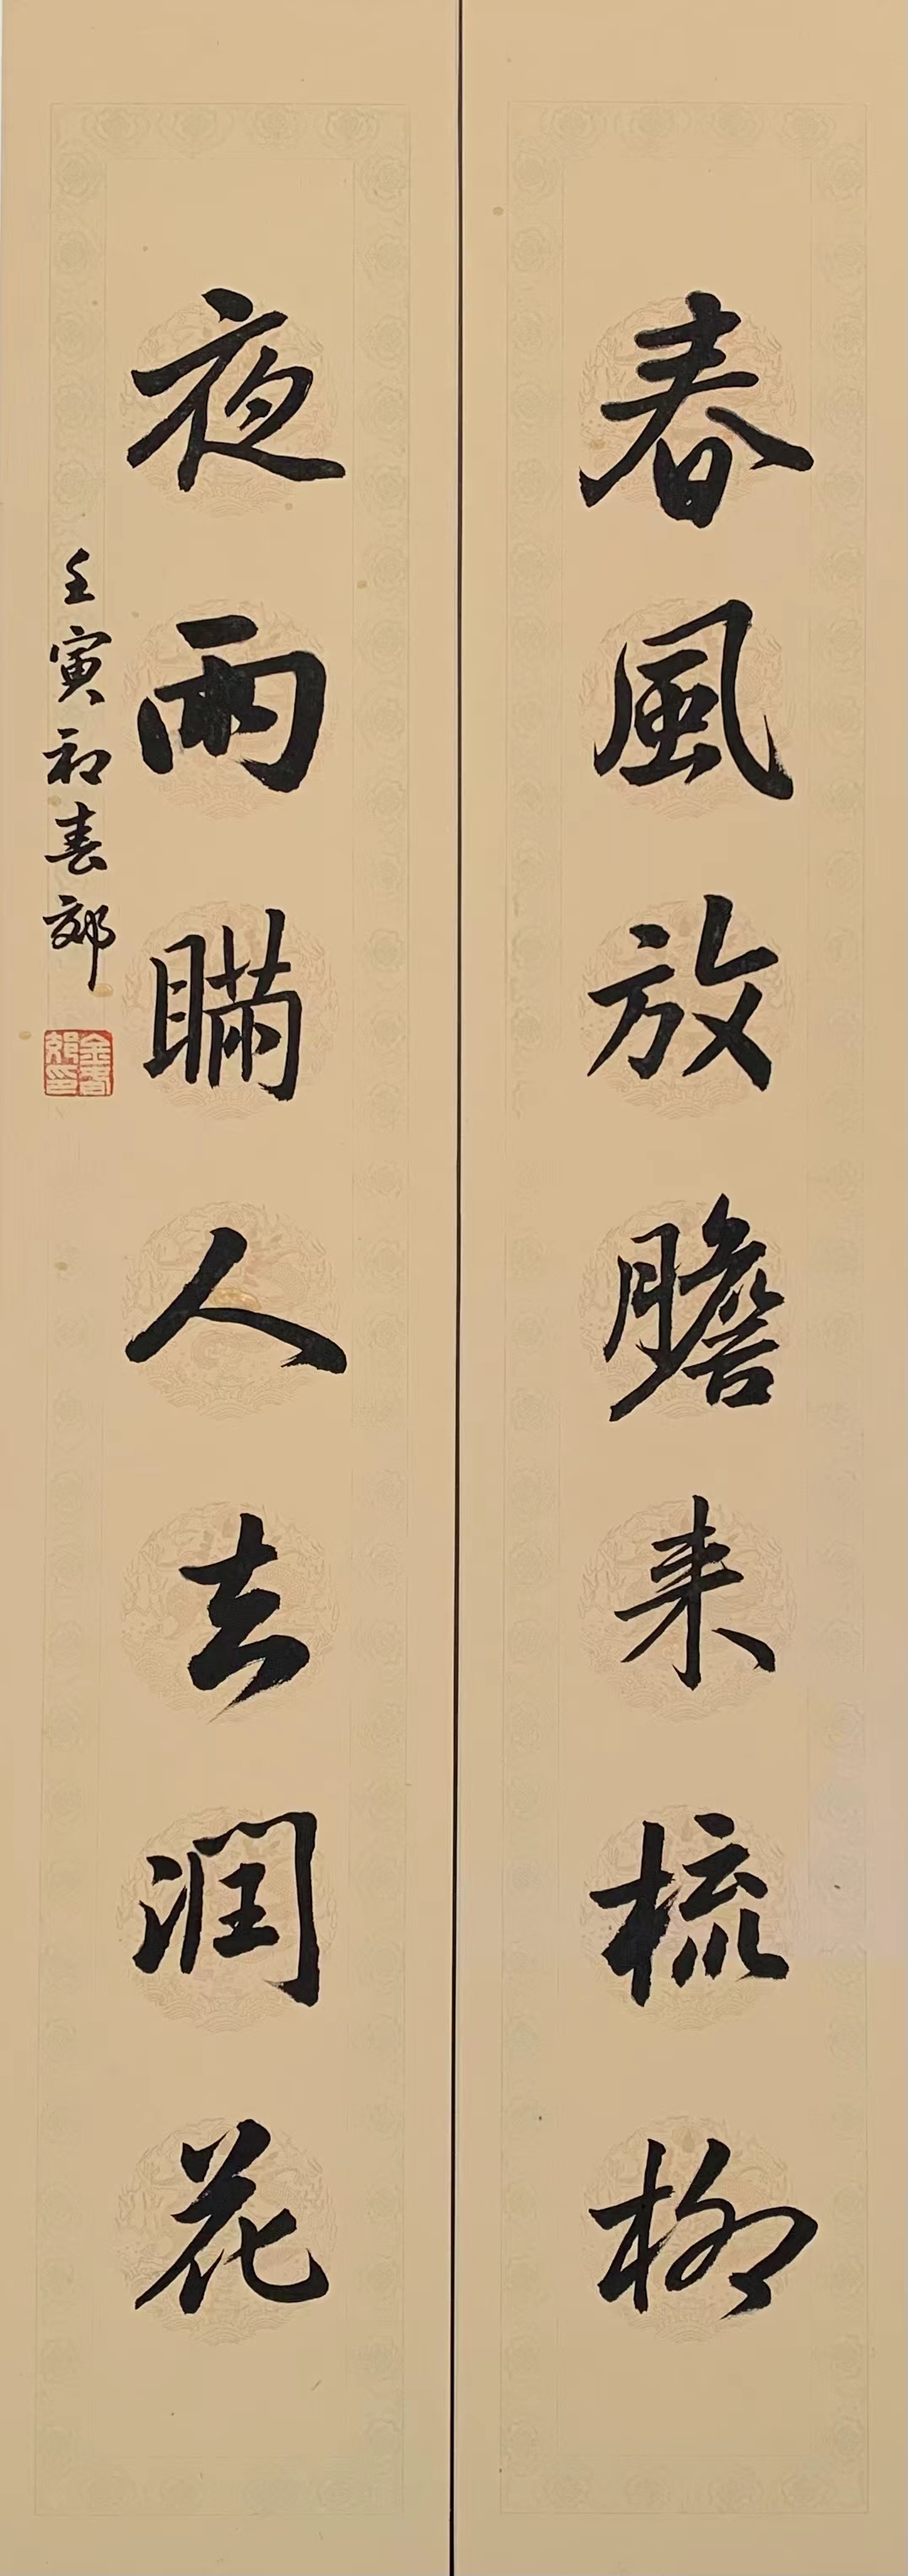 春風放膽来梳柳
夜雨瞞人去潤花
壬寅初春郊